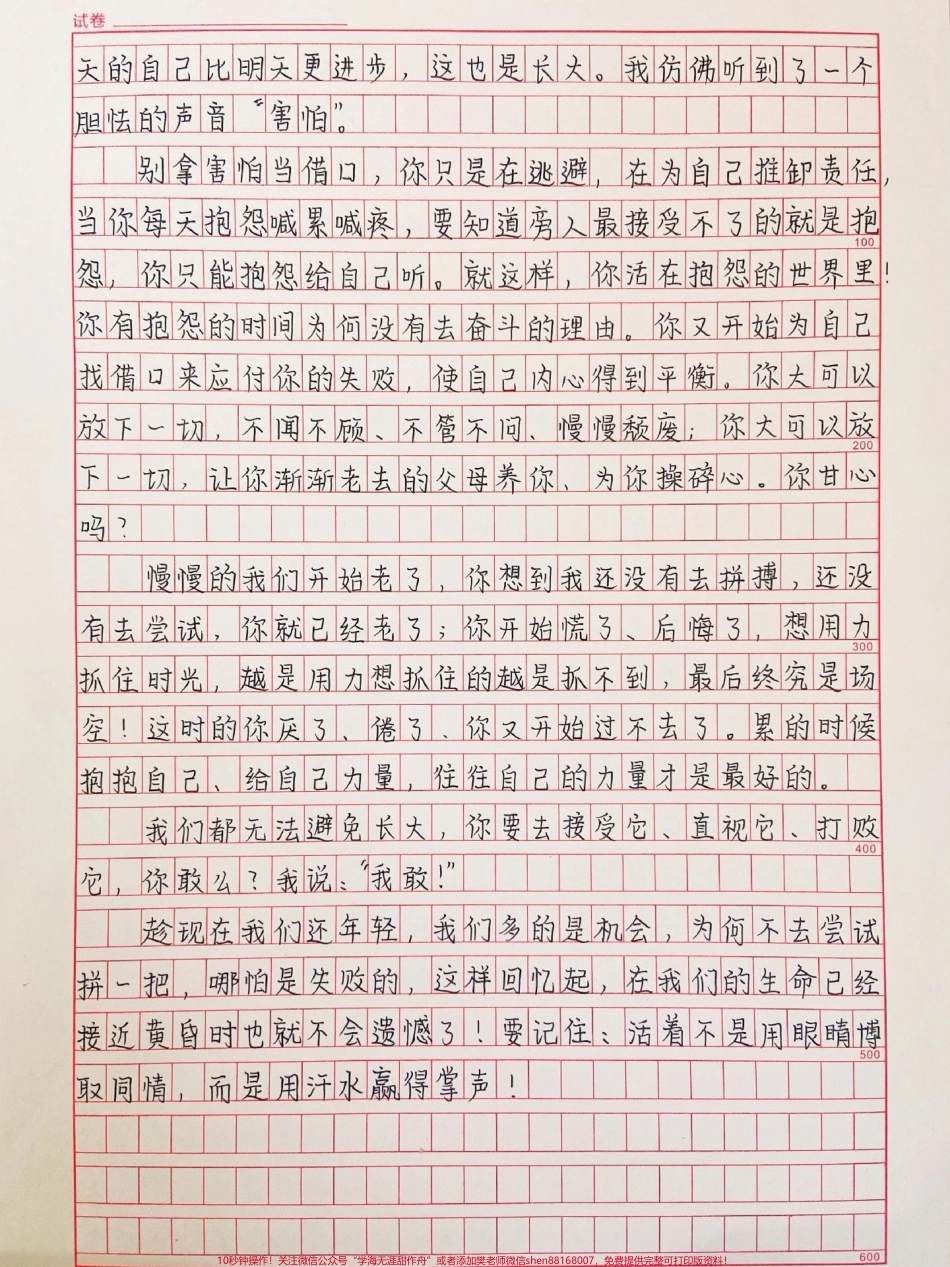 试卷
天的自己比明天更进步，这也是长大。我仿佛听到了一个
胆怯的声音“害怕”。
别拿害怕当借口，你只是在逃避，在为自己推卸责任，
当你每天抱怨喊累喊疼，要知道旁人最接受不了的就是抱
100
怨，你只能抱怨给自己听。就这样，你活在抱怨的世界里！
你有抱怨的时间为何没有去奋斗的理由。你又开始为自己
找借口来应付你的失败，使自己内心得到平衡。你大可以
放下一切，不闻不顾、不管不问、慢慢颓废；你大可以放
200
下一切，让你渐渐老去的父母养你、为你操碎心。你甘心
吗？
慢慢的我们开始老了，你想到我还没有去拼搏，还没
有去尝试，你就已经老了；你开始慌了、后悔了，想用力
300
抓住时光，越是用力想抓住的越是抓不到，最后终究是场
空！这时的你厌了、倦了、你又开始过不去了。累的时候
抱抱自己、给自己力量，往往自己的力量才是最好的。
我们都无法避免长大，你要去接受它、直视它、打败
400
它，你敢么？我说：“我敢！”
趁现在我们还年轻，我们多的是机会，为何不去尝试
拼一把，哪怕是失败的，这样回忆起，在我们的生命已经
接近黄昏时也就不会遗憾了！要记住：活着不是用眼睛博
500
取同情，而是用汗水赢得掌声！
600
10秒钟操作！关注微信公众号“学海无涯甜作舟”或者添加樊老师微信shen88168007，免费提供完整可打印版资料！